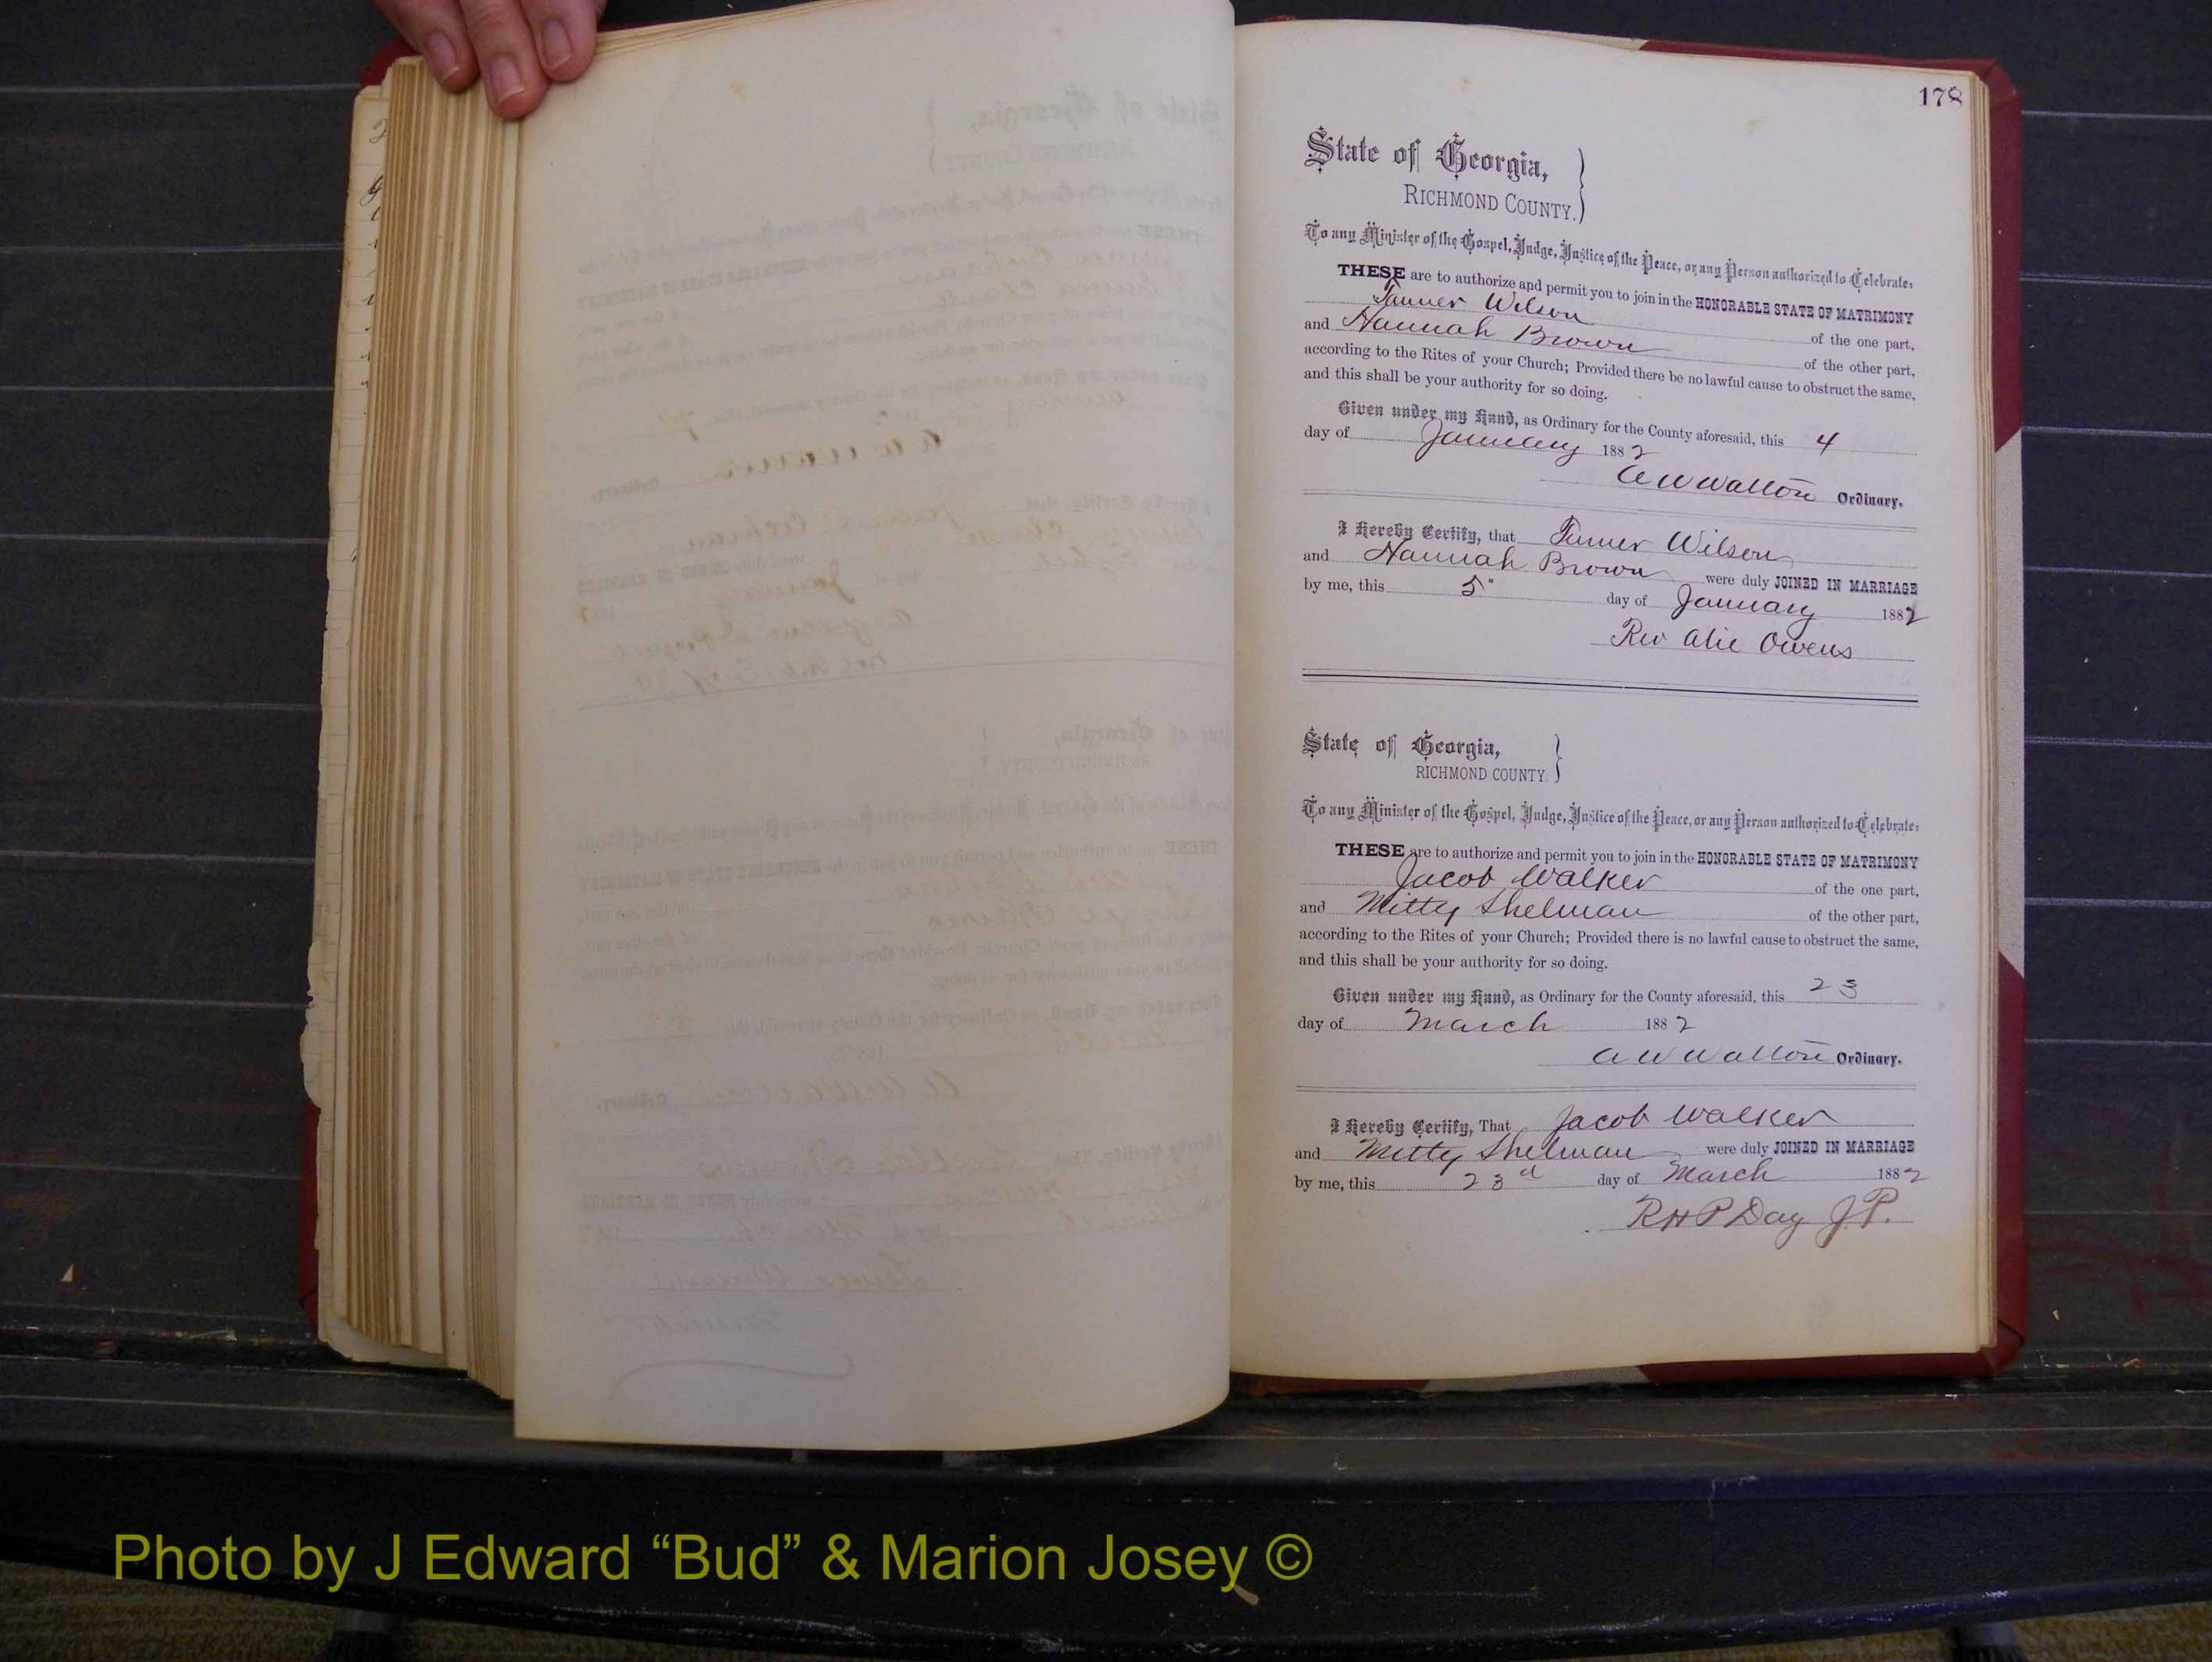 178
State of Georgia,
RICHMOND COUNTY.
To any Minister of the Gospel, Judge, Justice of the Peace, or any Person authorized to Celebrate:
THESE are to authorize and permit you to join in the HONORABLE STATE OF MATRIMONY
Turner Wilson of the one part,
and Hannah Brown of the other part,
according to the Rites of your Church; Provided there be no lawful cause to obstruct the same,
and this shall be your authority for so doing.
Given under my Hand, as Ordinary for the County aforesaid, this 4
day of January 1882
A W Walton Ordinary.
I Hereby Certify, that Turner Wilson
and Hannah Brown were duly JOINED IN MARRIAGE
by me, this 5" day of January 1882
Rev Owens
State of Georgia,
RICHMOND COUNTY.
To any Minister of the Gospel, Judge, Justice of the Peace, or any Person authorized to Celebrate:
THESE are to authorize and permit you to join in the HONORABLE STATE OF MATRIMONY
Jacob Walker of the one part,
and Mitty Shelman of the other part,
according to the Rites of your Church; Provided there is no lawful cause to obstruct the same,
and this shall be your authority for so doing.
Given under my Hand, as Ordinary for the County aforesaid, this 23
day of March 1882
A W Walton Ordinary.
I Hereby Certify, That Jacob Walker
and Mitty Shelman were duly JOINED IN MARRIAGE
by me, this 23d day of March 1882
R H P Day J. P.
Photo by J Edward “Bud” & Marion Josey ©